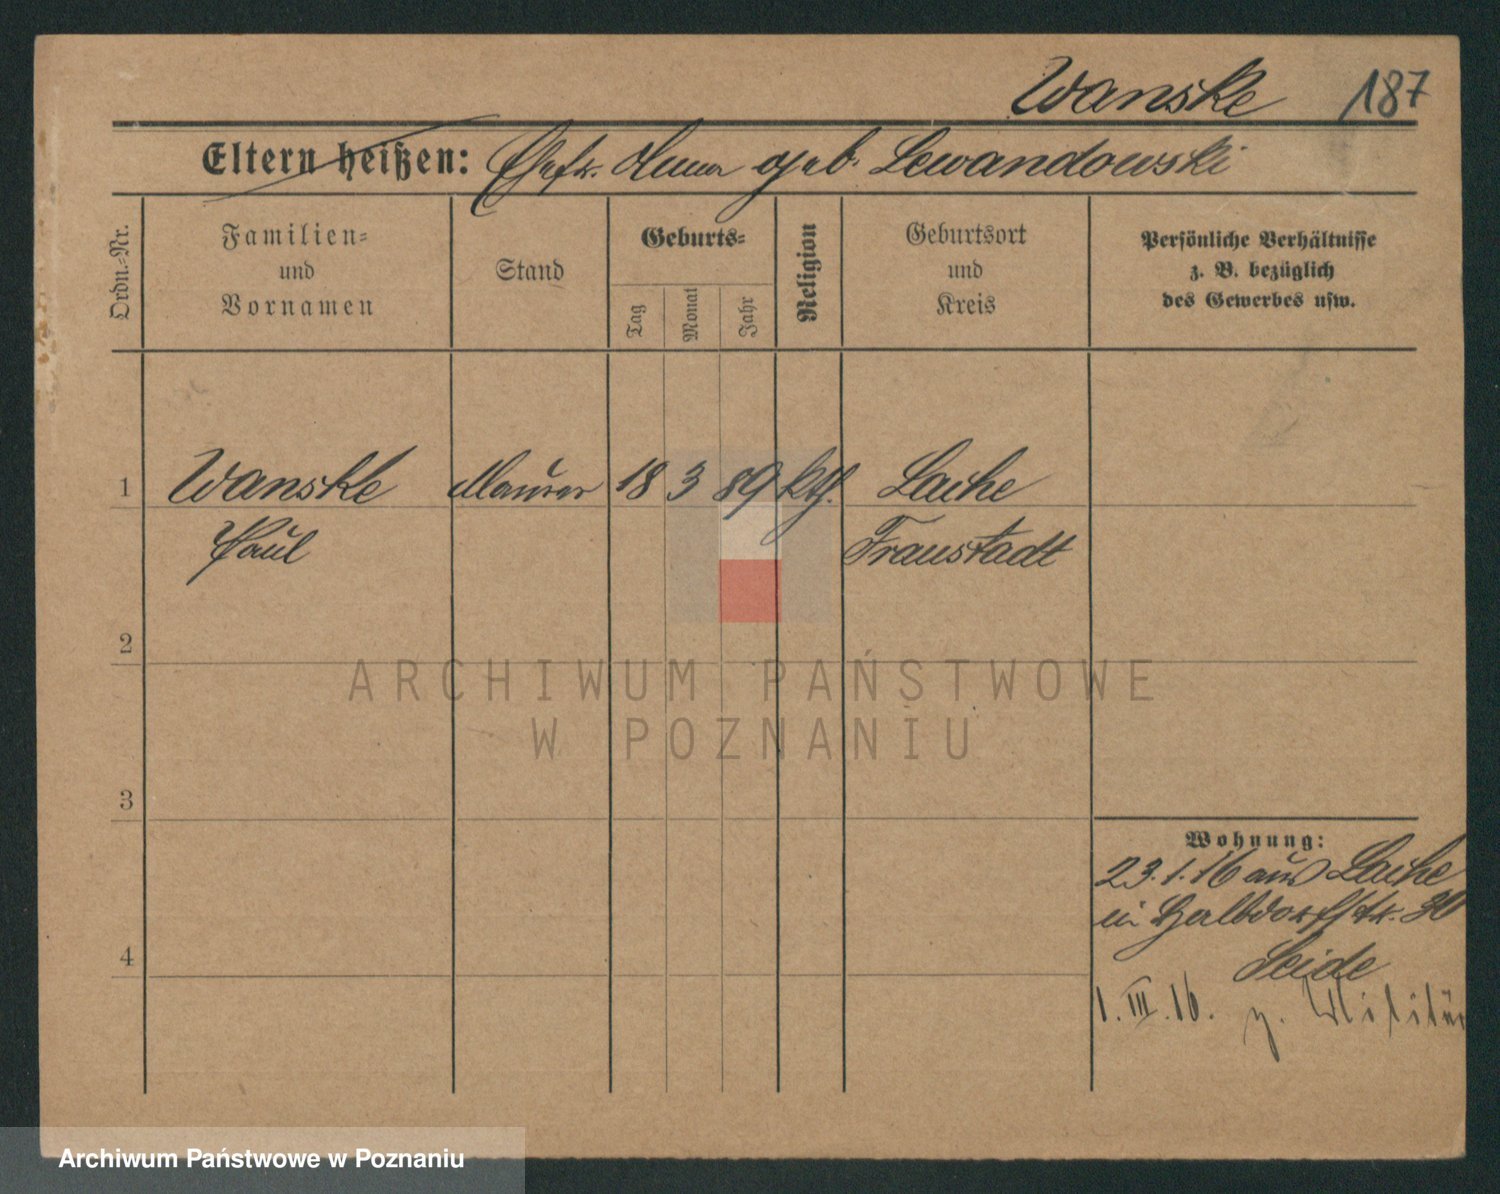 Wanske 187
Eltern heißen: Ehefr. Anna geb. Lewandowski
Ordn.-Nr.
Familien-
und
Vornamen
Stand
Geburts-
Tag
Monat
Jahr
Religion
Geburtsort
und
Kreis
Persönliche Verhältnisse
z. B. bezüglich
des Gewerbes usw.
1 Wanske Maurer 18 3 89 kth. Lache
Paul Fraustadt
2
3
4
Wohnung:
23.1.16 aus Lache
in Halbdorfstr. 30
Seide
1.III.16. z. Militär
ARCHIWUM PAŃSTWOWE
W POZNANIU
Archiwum Państwowe w Poznaniu